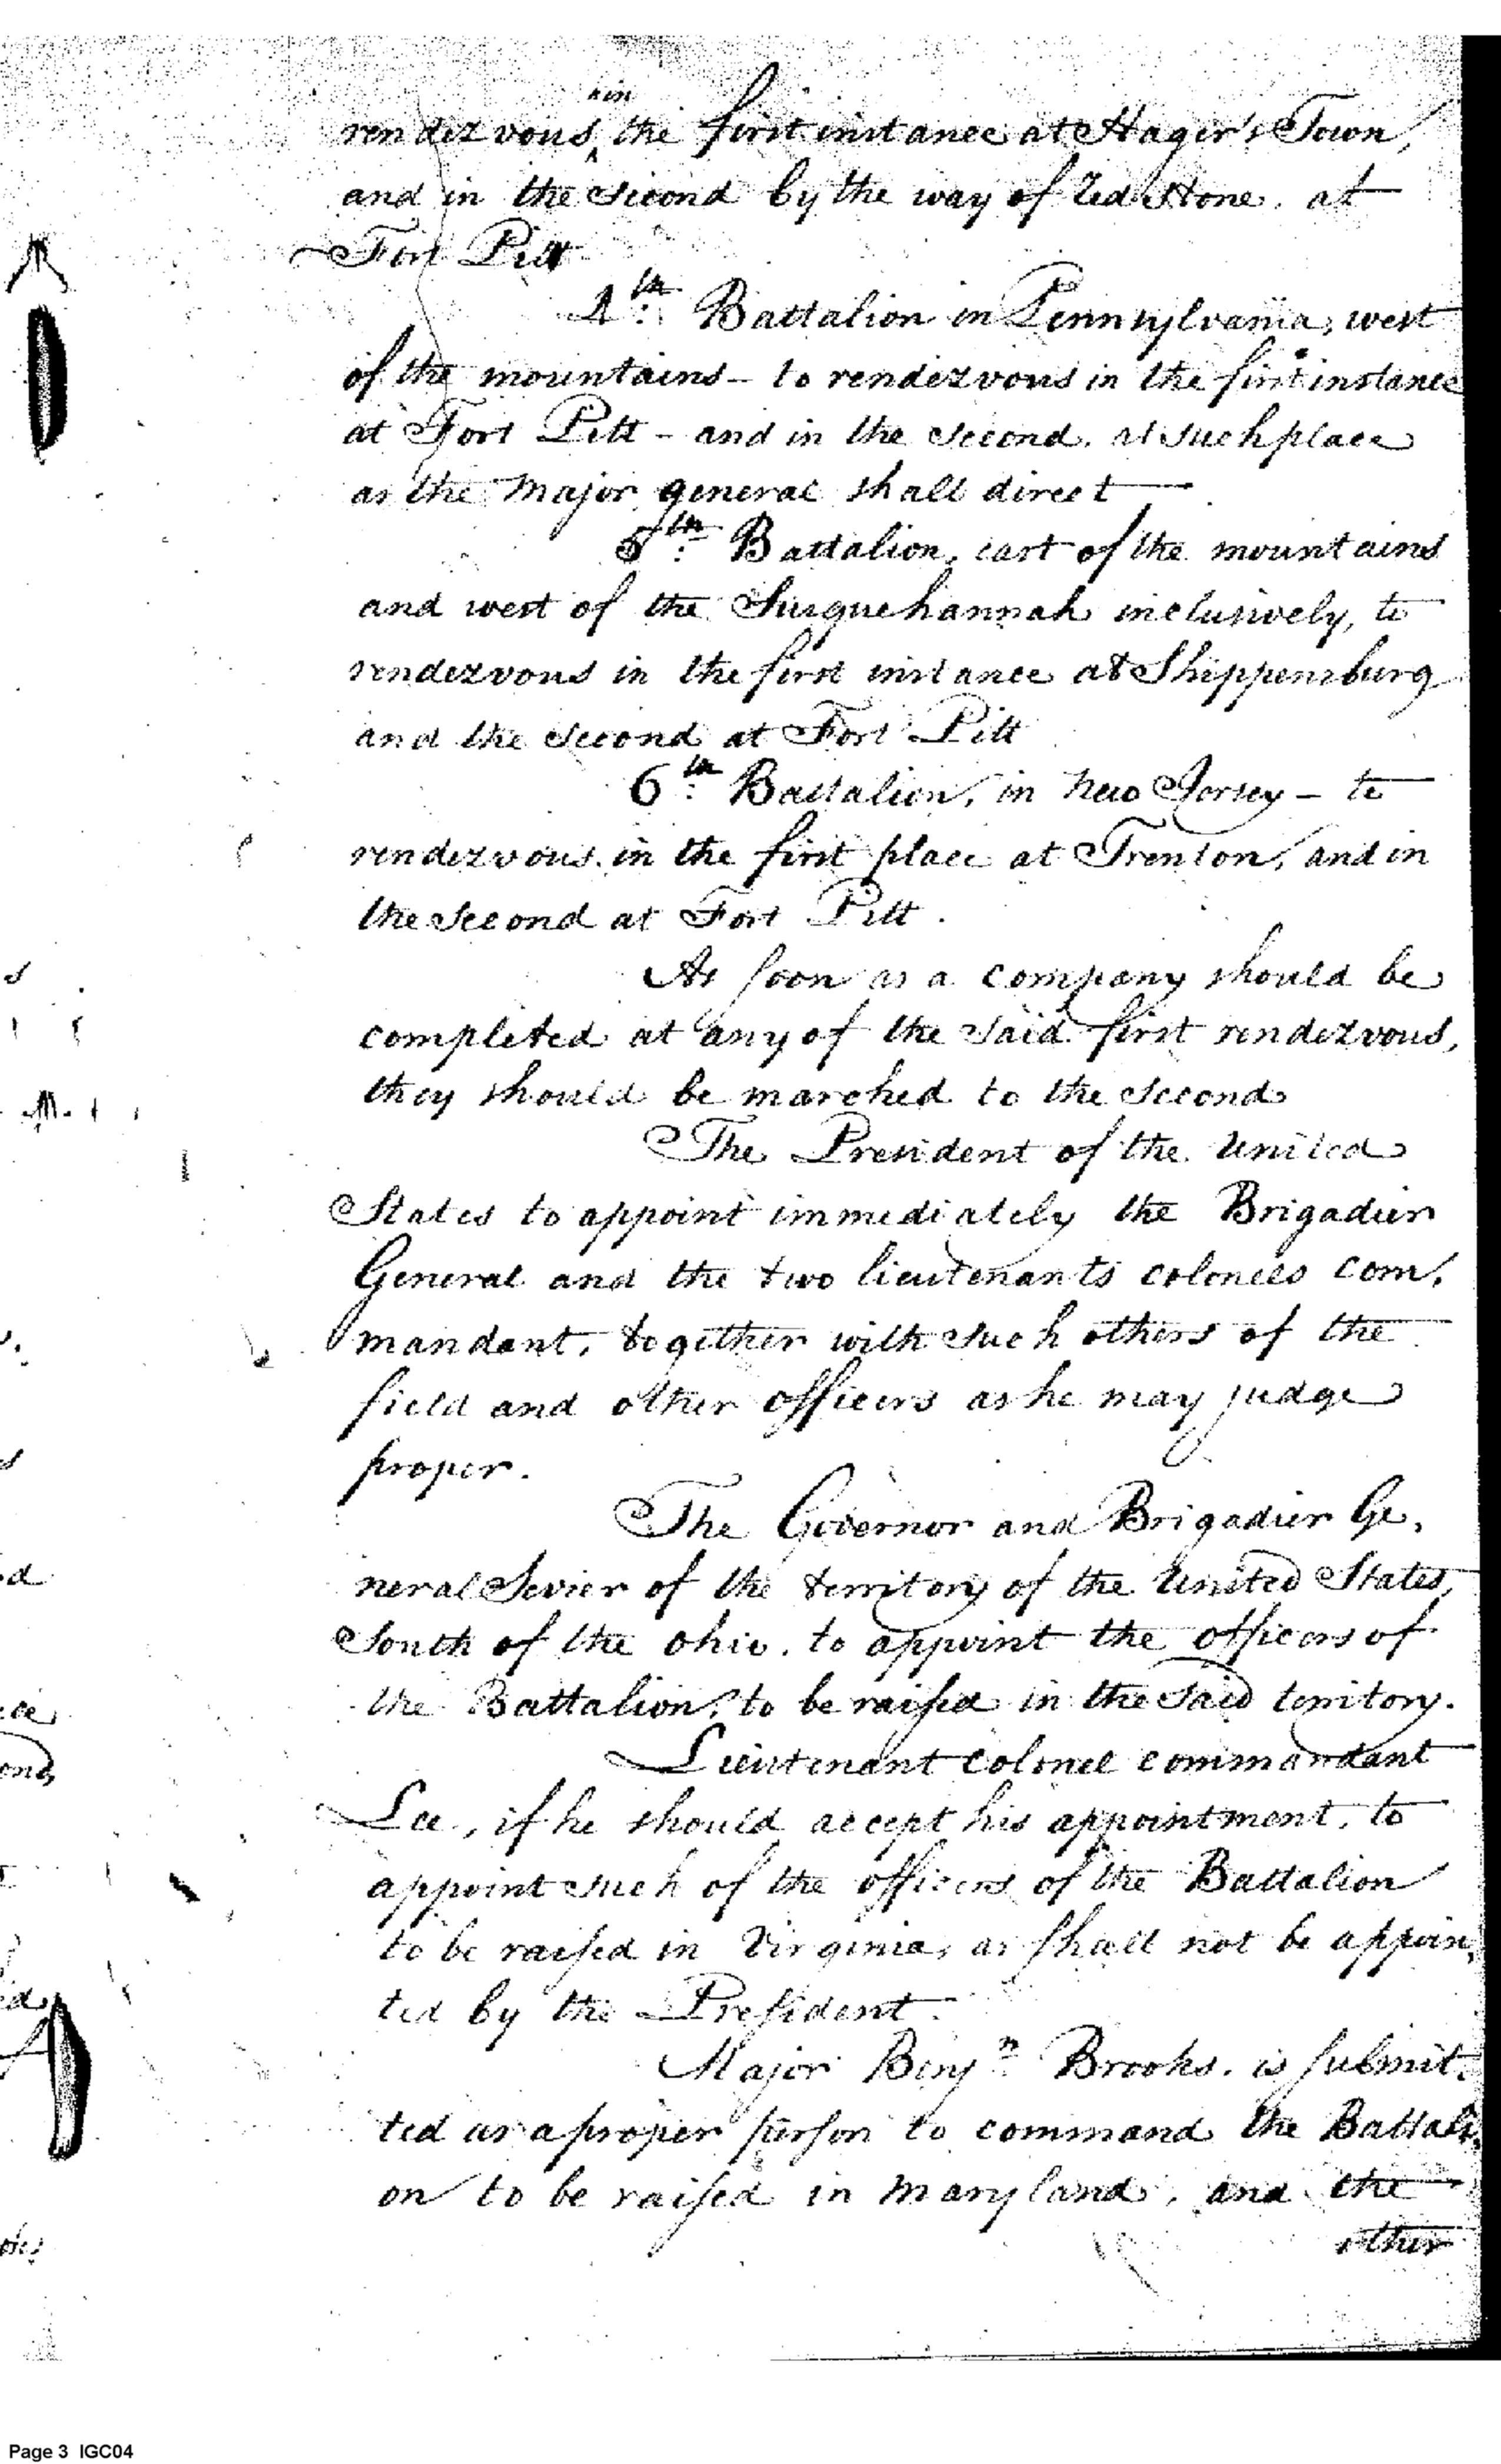 in
rendezvous the first instance at Hager's Town,
and in the second by the way of Red Stone, at
Fort Pitt
4th Battalion in Pennsylvania, west
of the mountains - to rendezvous in the first instance
at Fort Pitt - and in the second, at such place
as the Major general shall direct —
5th Battalion, east of the mountains
and west of the Susquehannah inclusively, to
rendezvous in the first instance at Shippensburg
and the second at Fort Pitt
6th Battalion, in New Jersey - to
rendezvous in the first place at Trenton, and in
the second at Fort Pitt.
As soon as a company should be
completed at any of the said first rendezvous,
they should be marched to the second
The President of the United
States to appoint immediately the Brigadier
General and the two lieutenants colonels com,
mandant, together with such others of the
field and other officers as he may judge
proper.
The Governor and Brigadier Ge,
neral Sevier of the territory of the United States,
South of the ohio, to appoint the officers of
the Battalion, to be raised in the said territory.
Lieutenant colonel commandant
Lee, if he should accept his appointment, to
appoint such of the officers of the Battalion
to be raised in Virginia, as shall not be appoin,
ted by the President.
Major Benjn Brooks, is submit,
ted as a proper person to command the Battali,
on to be raised in Maryland, and the
other
Page 3 IGC04